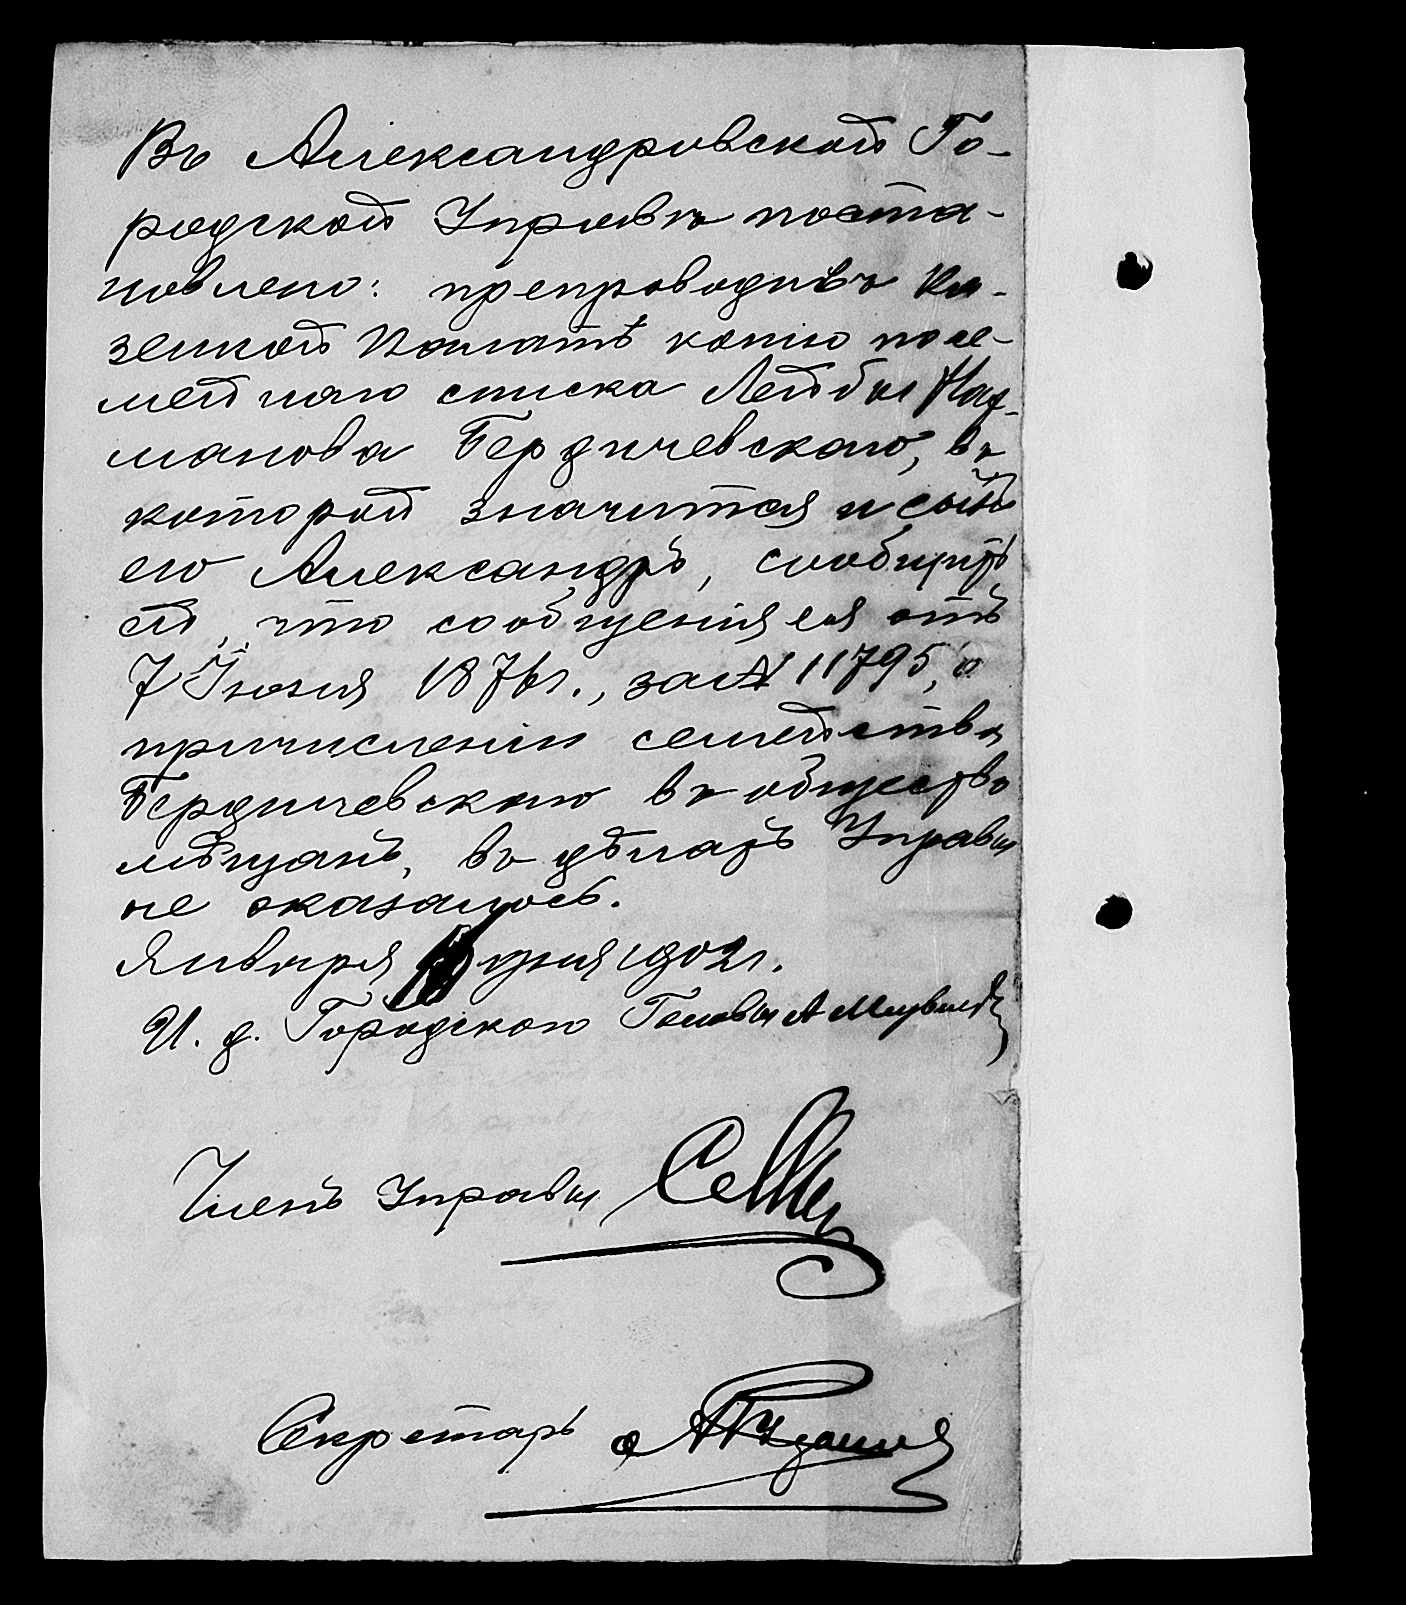 Въ Александровской Го-
родской Управѣ поста-
новлено: препроводивъ Ка-
зенной Палатѣ копію посе-
мейнаго списка Лейбы Нах-
манова Бердичевскаго, въ
которой значится и сынъ
его Александръ, сообщить
ей, что сообщенія ея отъ
7 Іюня 1876г., за № 11795, о
причисленіи семейства
Бердичевскаго въ общество
мѣщанъ, въ дѣлахъ Управы
не оказалось.
Января дня 1902г.
И. д. Городского Головы А
Членъ Управы
Секретарь